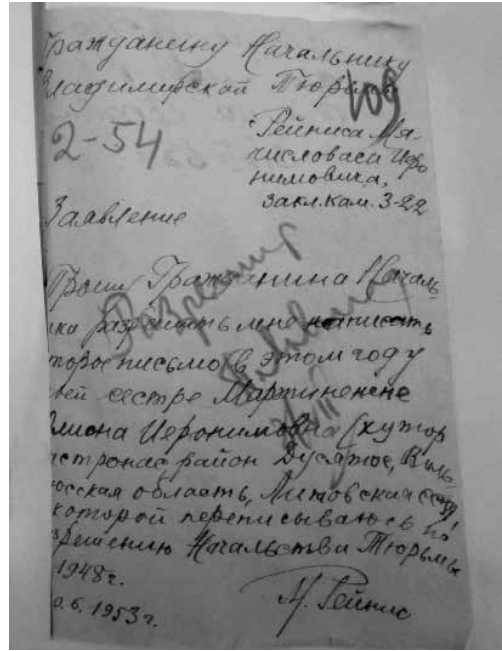 Гражданину Начальнику
Владимирской Тюрьмы
109
2-54
Рейниса Мя-
числоваса Иеро
нимовича,
закл. кам. 3-22
Заявление
Прошу Гражданина Началь
ика разрешить мне написать
торое письмо в этом году
оей сестре Мартиненене
Иеронимовна (хутор
астронас район Дусятос, Виль
юсская область, Литовская ССР)
которой переписываюсь по
зрешению Начальства Тюрьмы
1948 г.
1953 г.
М. Рейнис
Разрешить